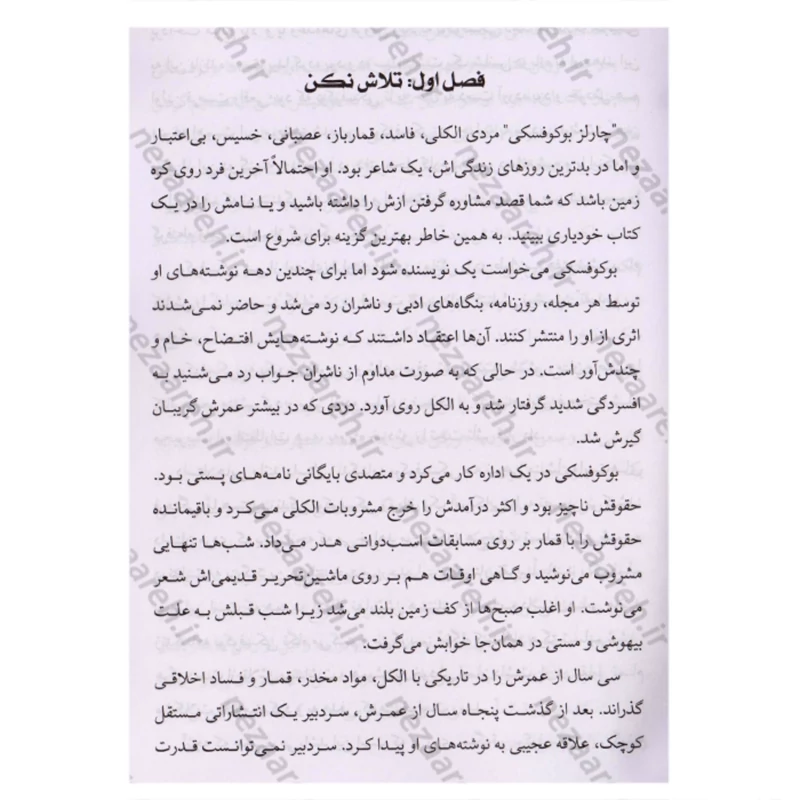 فصل اول: تلاش نکن
"چارلز بوکوفسکی" مردی الکلی، فاسد، قمارباز، عصبانی، خسیس، بی‌اعتبار
و اما در بدترین روزهای زندگی‌اش، یک شاعر بود. او احتمالاً آخرین فرد روی کره
زمین باشد که شما قصد مشاوره گرفتن ازش را داشته باشید و یا نامش را در یک
کتاب خودیاری ببینید. به همین خاطر بهترین گزینه برای شروع است.
بوکوفسکی می‌خواست یک نویسنده شود اما برای چندین دهه نوشته‌های او
توسط هر مجله، روزنامه، بنگاه‌های ادبی و ناشران رد می‌شد و حاضر نمی‌شدند
اثری از او را منتشر کنند. آن‌ها اعتقاد داشتند که نوشته‌هایش افتضاح، خام و
چندش‌آور است. در حالی که به صورت مداوم از ناشران جواب رد می‌شنید به
افسردگی شدید گرفتار شد و به الکل روی آورد. دردی که در بیشتر عمرش گریبان
گیرش شد.
بوکوفسکی در یک اداره کار می‌کرد و متصدی بایگانی نامه‌های پستی بود.
حقوقش ناچیز بود و اکثر درآمدش را خرج مشروبات الکلی می‌کرد و باقیمانده
حقوقش را با قمار بر روی مسابقات اسب‌دوانی هدر می‌داد. شب‌ها تنهایی
مشروب می‌نوشید و گاهی اوقات هم بر روی ماشین‌تحریر قدیمی‌اش شعر
می‌نوشت. او اغلب صبح‌ها از کف زمین بلند می‌شد زیرا شب قبلش به علت
بیهوشی و مستی در همان‌جا خوابش می‌گرفت.
سی سال از عمرش را در تاریکی با الکل، مواد مخدر، قمار و فساد اخلاقی
گذراند. بعد از گذشت پنجاه سال از عمرش، سردبیر یک انتشاراتی مستقل
کوچک، علاقه عجیبی به نوشته‌های او پیدا کرد. سردبیر نمی‌توانست قدرت
nezaareh.ir